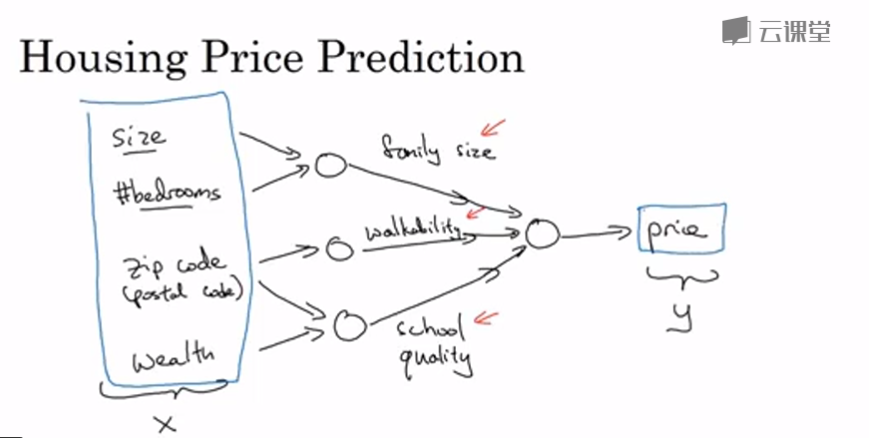 云课堂
Housing Price Prediction
size
#bedrooms
zip code
(postal code)
wealth
x
family size
walkability
school
quality
price
y